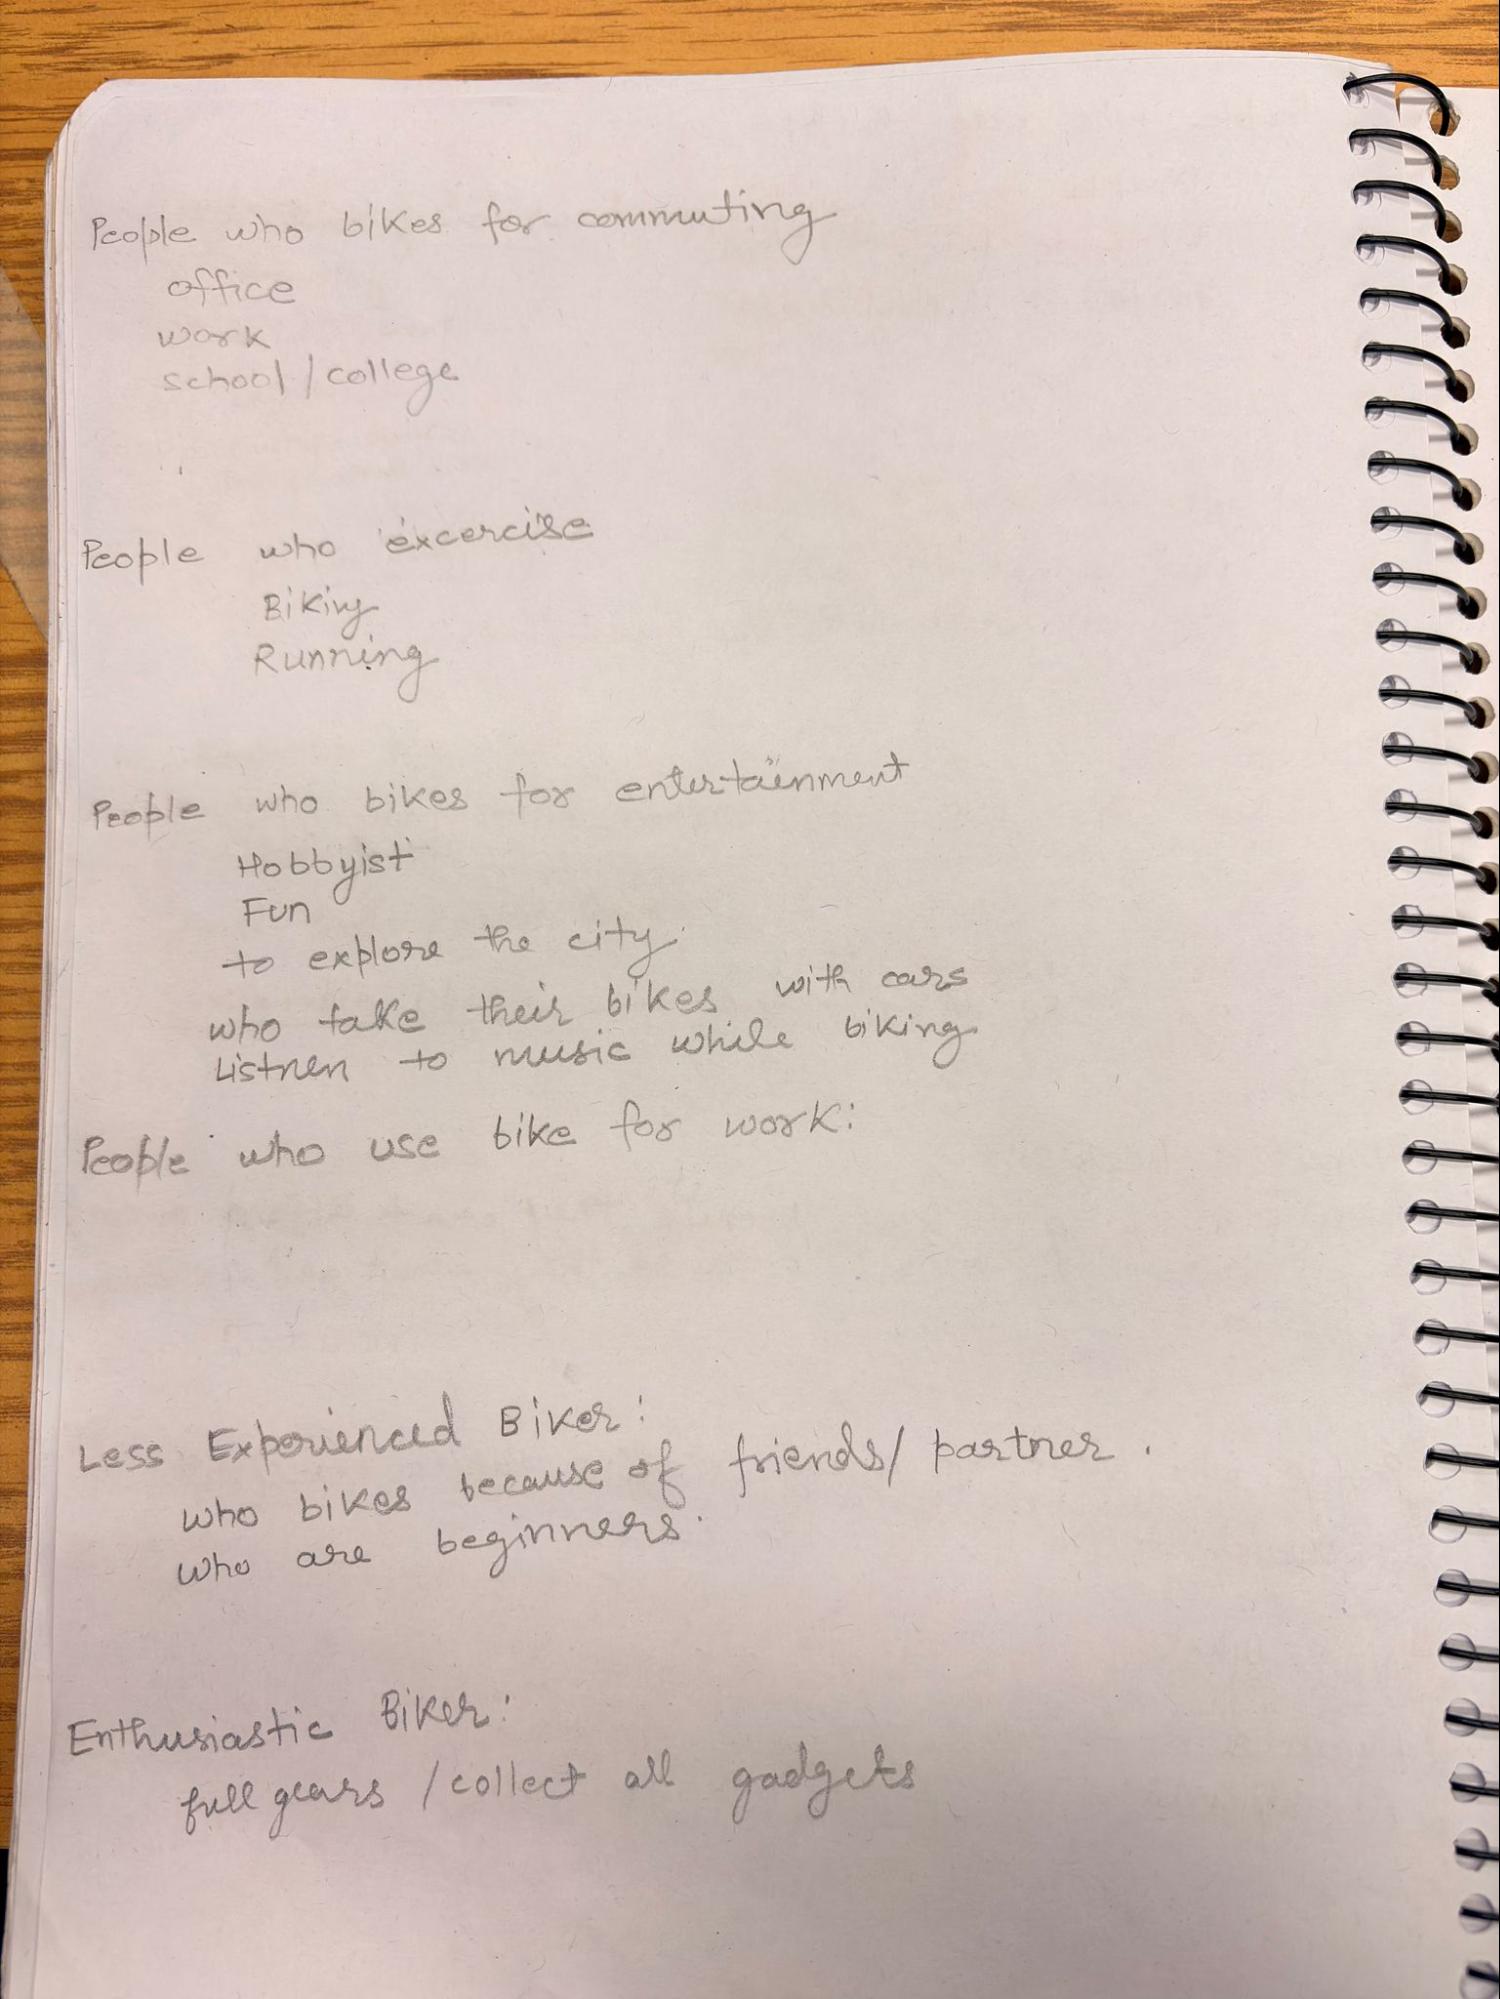 People who bikes for commuting
office
work
school/college
People who excercise
Biking
Running
People who bikes for entertainment
Hobbyist
Fun
to explore the city.
who take their bikes with cars
Listnen to music while biking
People who use bike for work:
Less Experienced Biker:
who bikes because of friends/partner.
who are beginners.
Enthusiastic Biker:
full gears /collect all gadgets